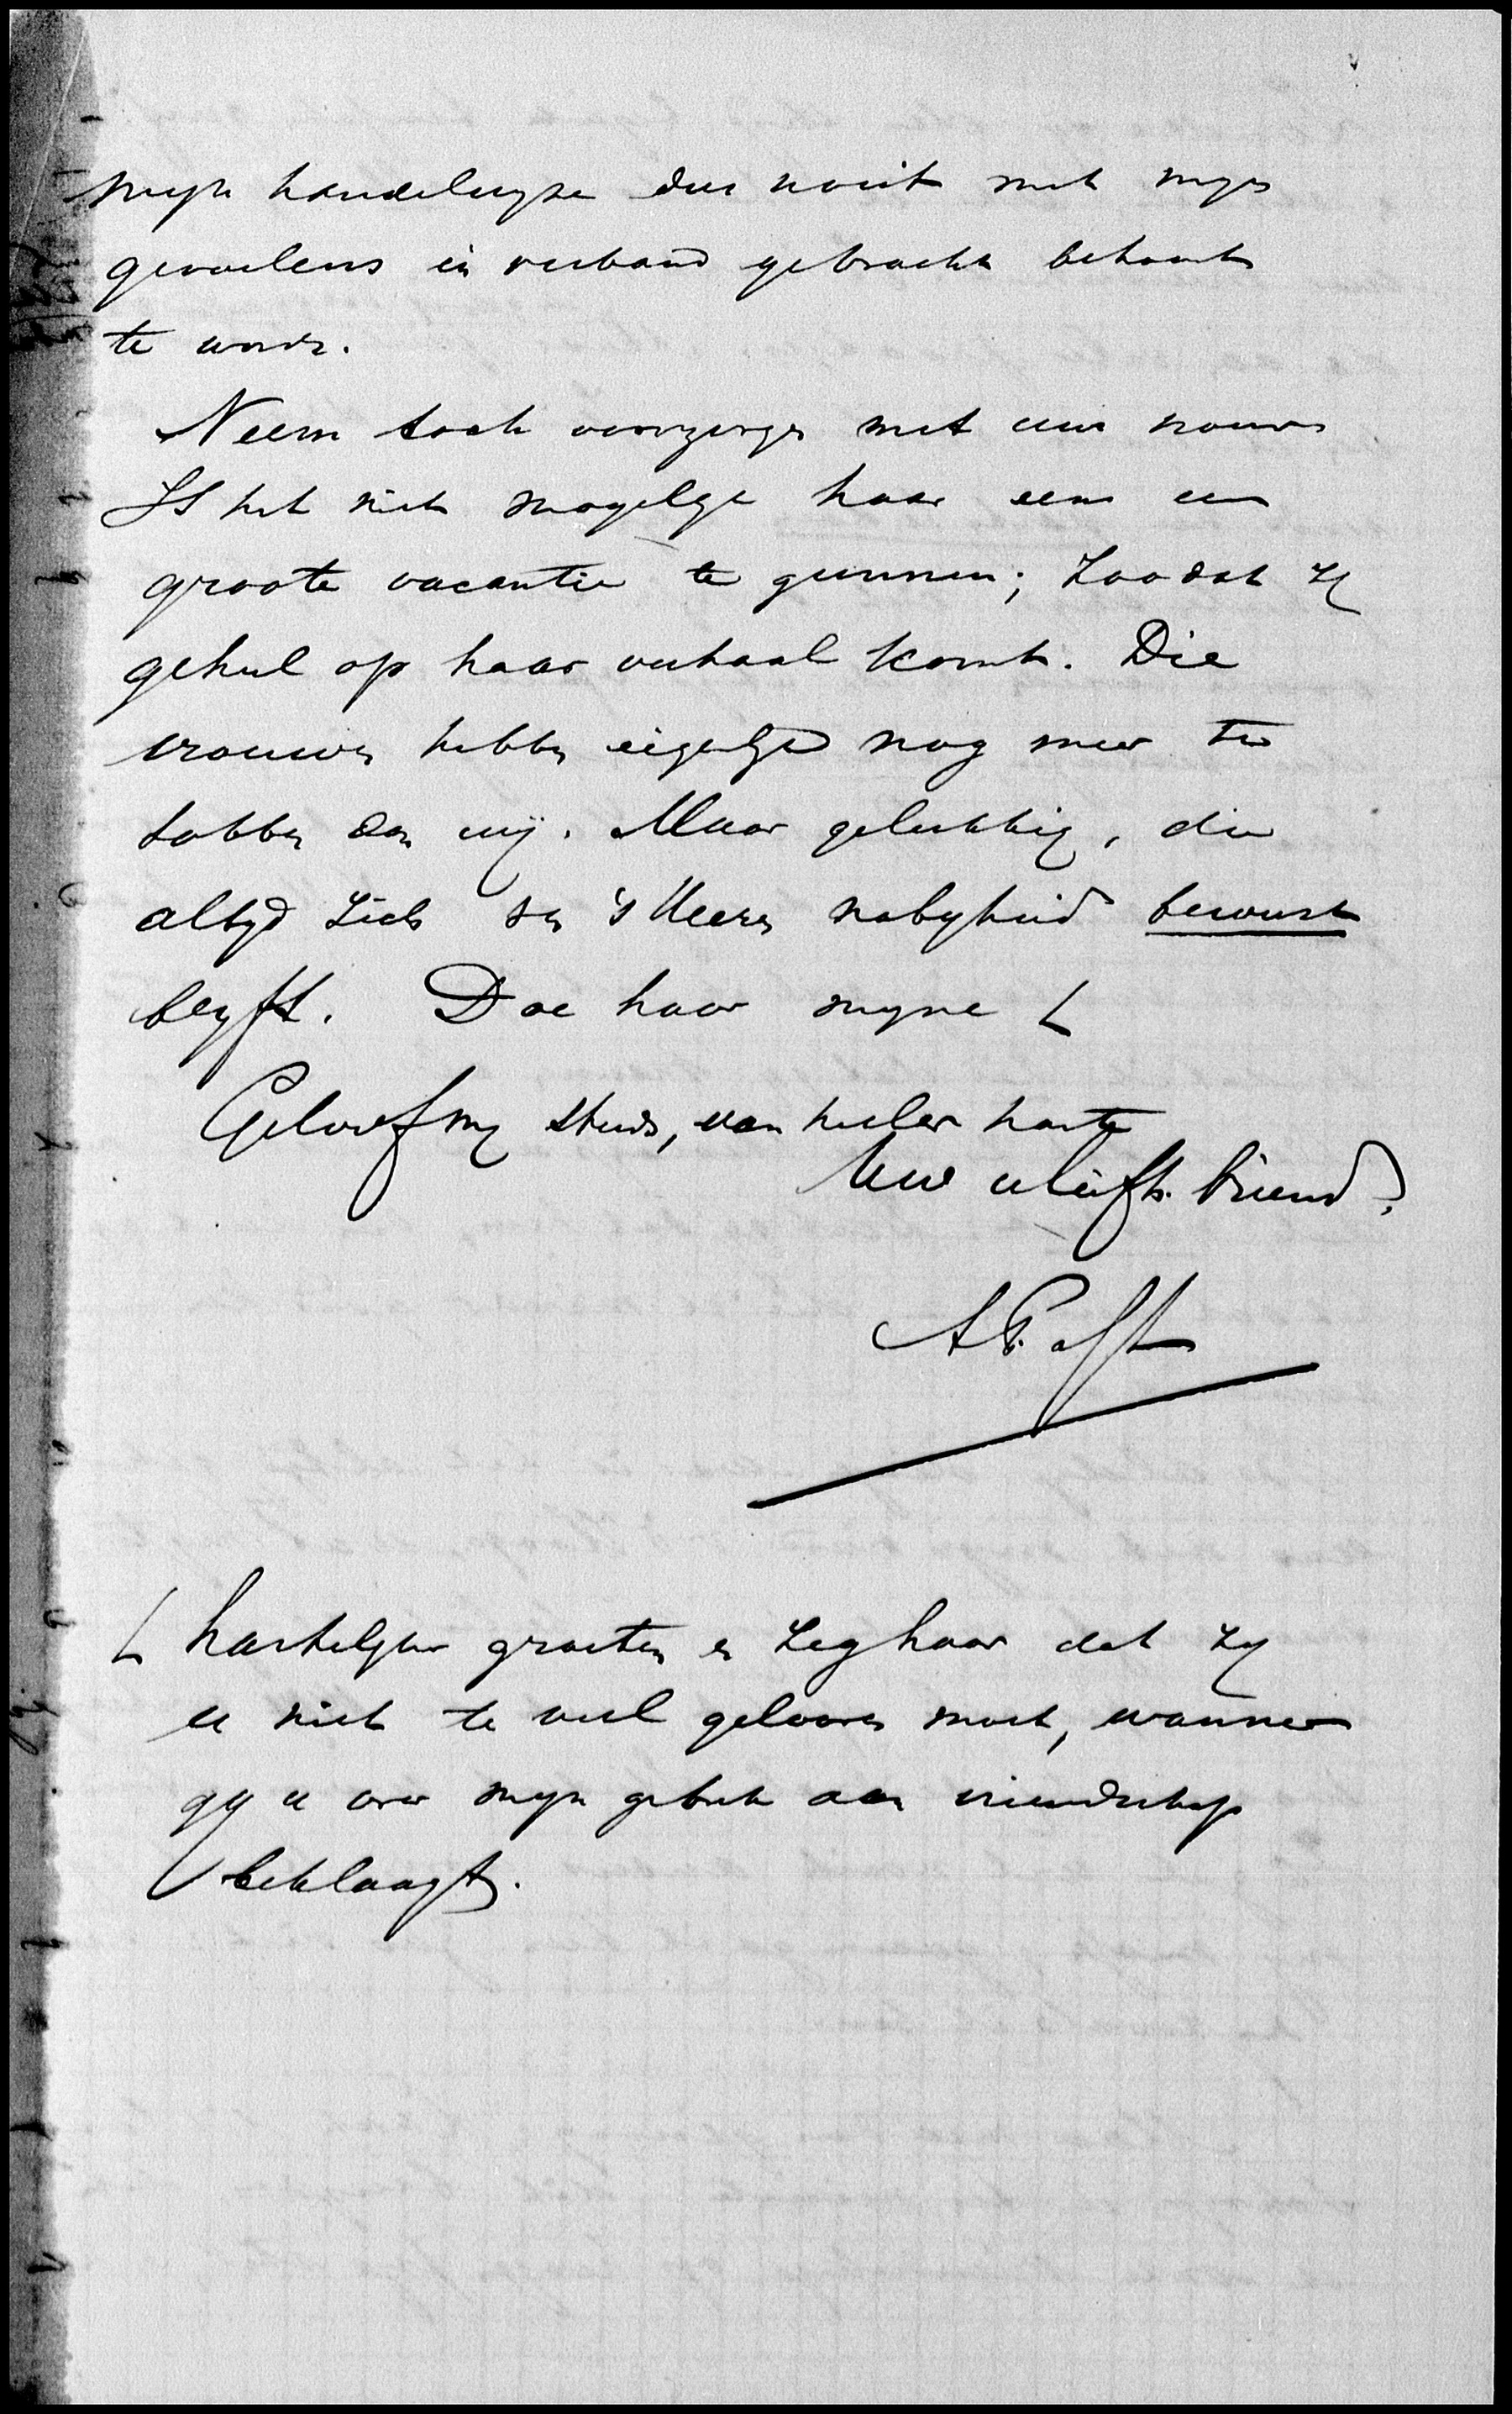 mijn handelwijze dus nooit met mijn
gevoelens in verband gebracht behoort
te worden.
Neem toch voorzorgen met uw vrouw
Is het niet mogelijk haar eens een
groote vacantie te gunnen; zoodat zij
geheel op haar verhaal komt. Die
vrouwen hebben eigenlijk nog meer te
tobben dan wij. Maar gelukkig, die
altijd zich den 's Heeren nabijheid bewust
blijft. Doe haar mijne
Geloof mij steeds, van heeler harte
Uw liefh. Vriend,
hartelijke groeten en zeg haar dat zij
u niet te veel gelooven moet, wanneer
gij u over mijn gebrek aan vriendschap
beklaagt.